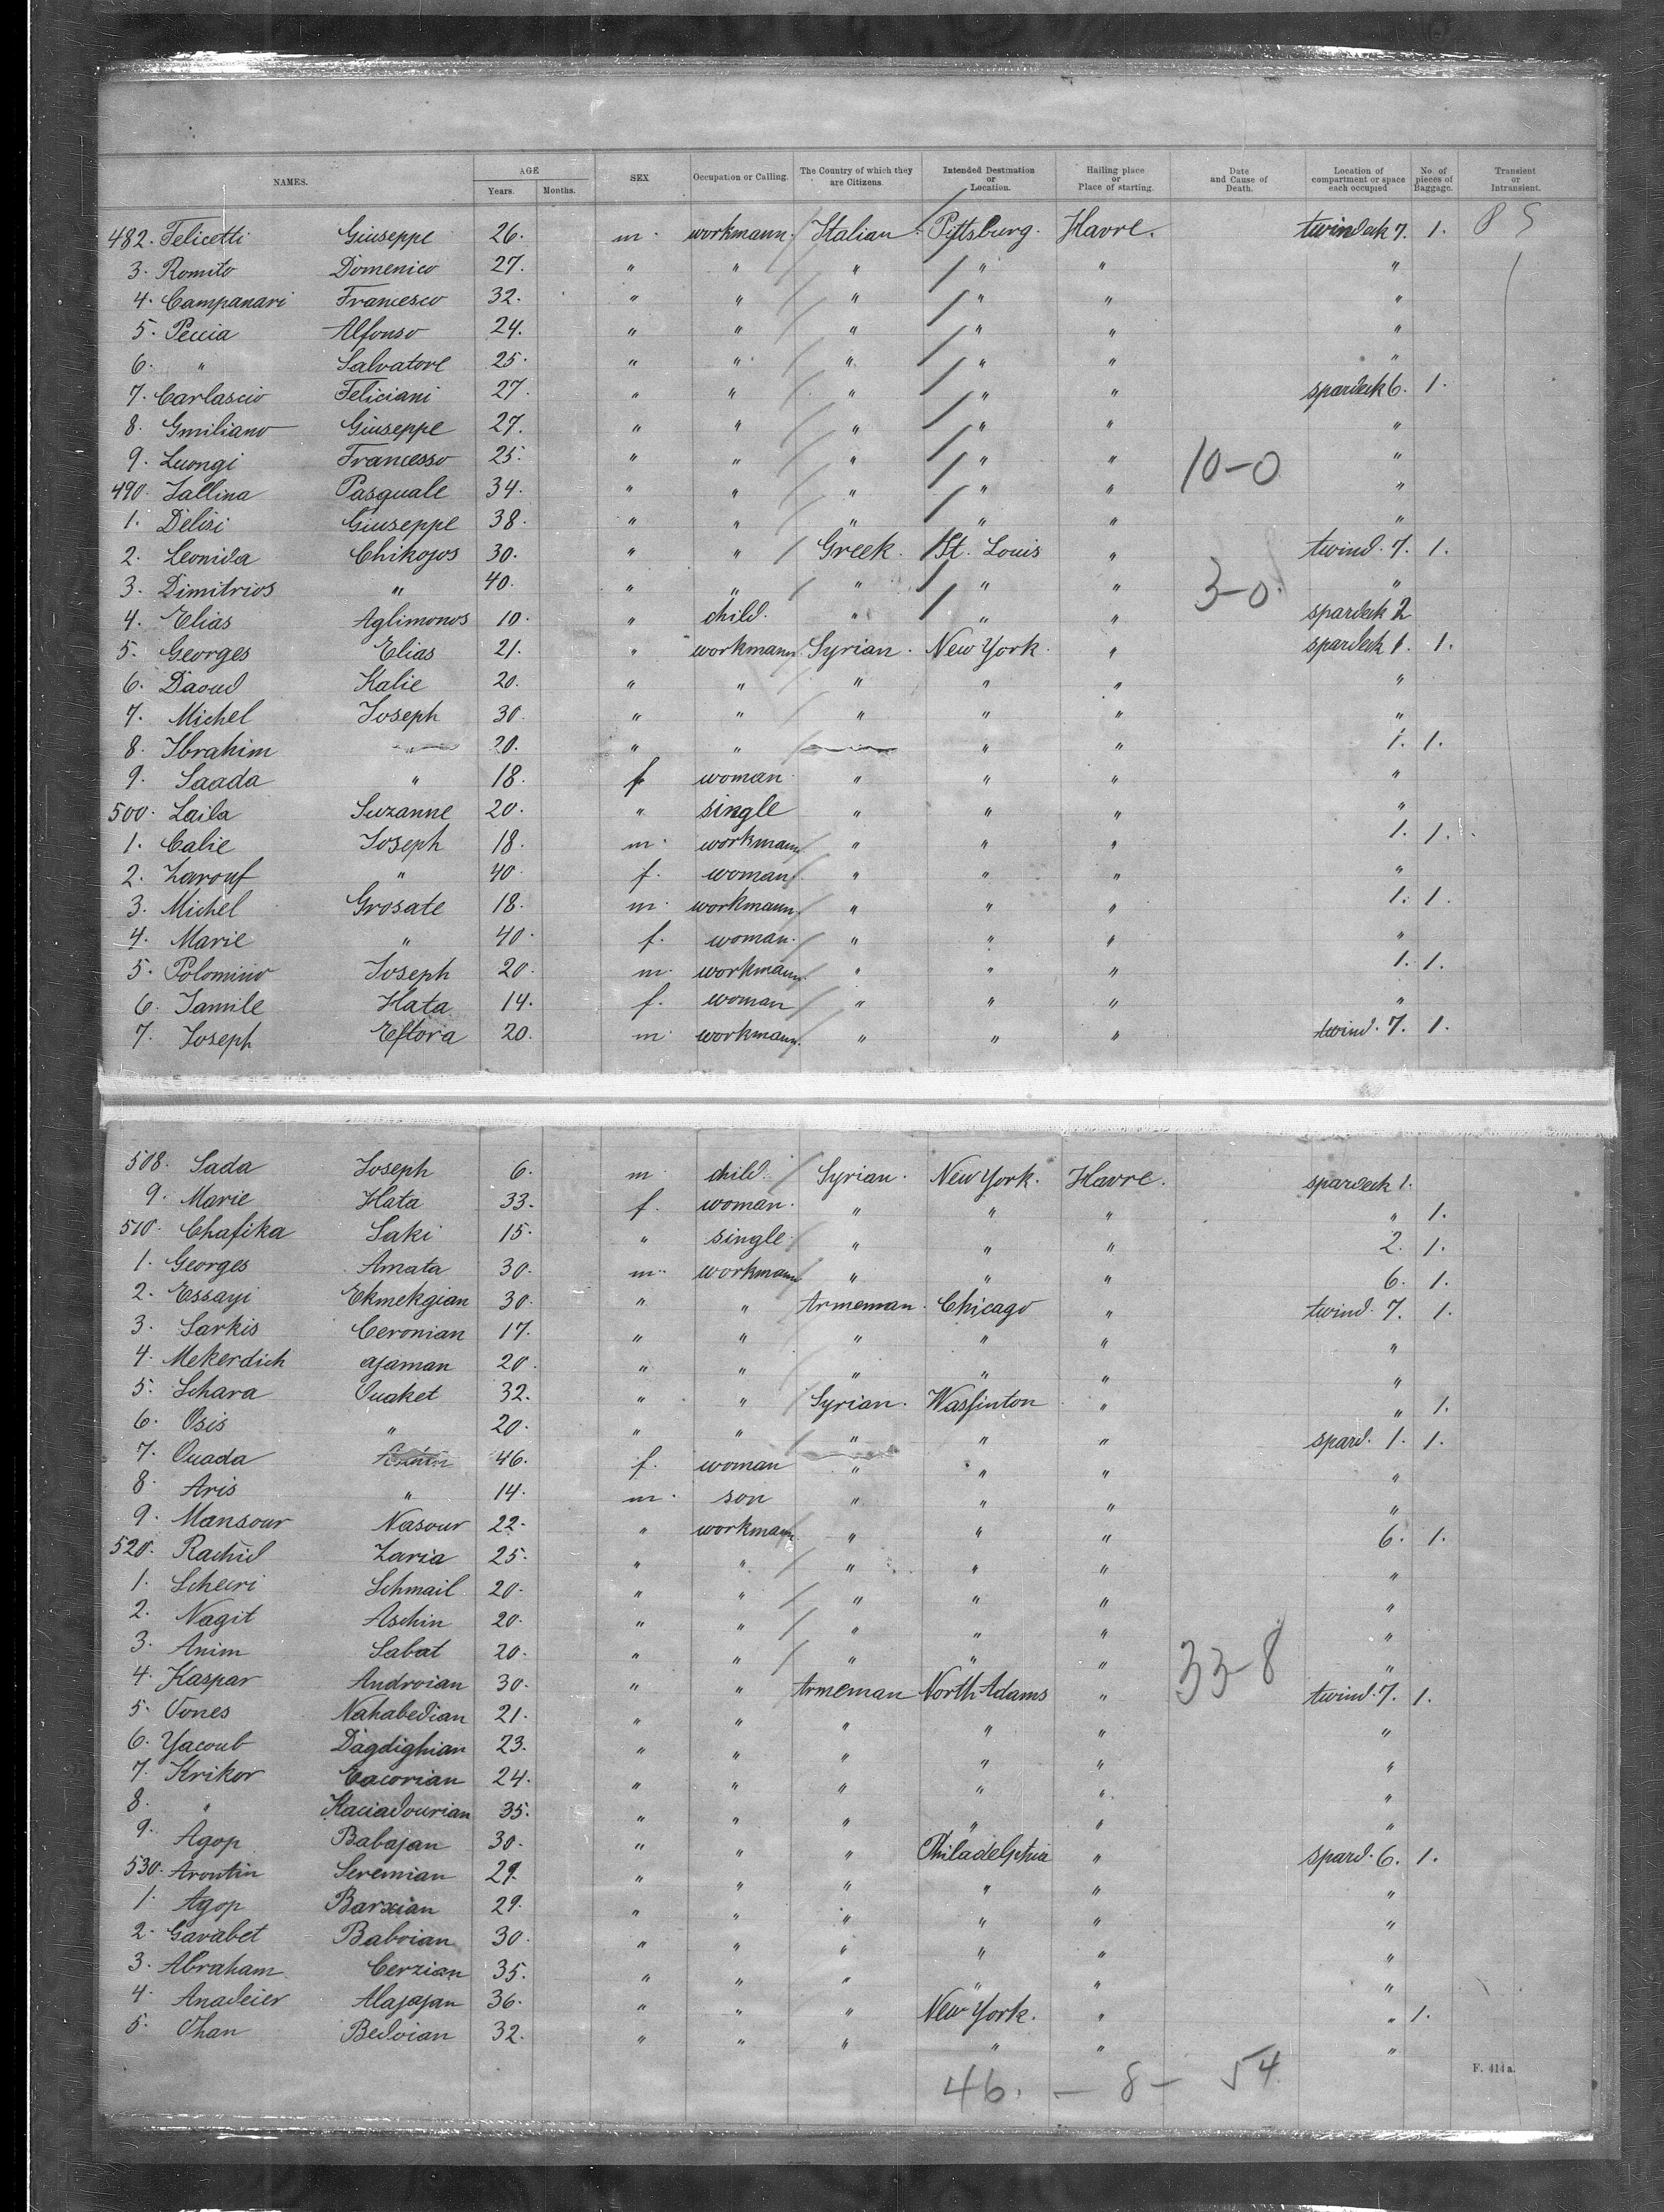 NAMES. AGE Years. Months. SEX Occupation or Calling. The Country of which they are Citizens. Intended Destination or Location. Hailing place or Place of starting. Date and Cause of Death. Location of compartment or space each occupied No. of pieces of Baggage. Transient or Intransient.
482. Felicetti Giuseppe 26. m. workmann. Italian. Pittsburg. Havre. twindeck 7. 1. 8 5
3. Romito Domenico 27. " " " " " "
4. Campanari Francesco 32. " " " " " "
5. Peccia Alfonso 24. " " " " " "
6. " Salvatore 25. " " " " " "
7. Carlascio Feliciani 27. " " " " " spardeck 6. 1.
8. Gmiliano Giuseppe 27. " " " " " "
9. Luongi Francesso 25. " " " " " 10-0 "
490. Zallina Pasquale 34. " " " " " "
1. Delisi Giuseppe 38. " " " " " "
2. Leonida Chikojos 30. " " Greek. St. Louis " twind. 7. 1.
3. Dimitrios " 40. " " " " " 3-0. "
4. Elias Aglimonos 10. " child. " " " spardeck 2
5. Georges Elias 21. " workmann Syrian. New York. " spardeck 1. 1.
6. Daoud Kalie 20. " " " " " "
7. Michel Joseph 30. " " " " " "
8. Ibrahim " 20. " " " " 1. 1.
9. Saada " 18. f. woman. " " " "
500. Laila Suzanne 20. " single " " " "
1. Calie Joseph 18. m. workmann " " " 1. 1.
2. Zarouf " 40. f. woman " " " "
3. Michel Grosate 18. m. workmann. " " " 1. 1.
4. Marie " 40. f. woman. " " " "
5. Polomino Joseph 20. m. workmann. " " " 1. 1.
6. Jamile Hata 14. f. woman " " " "
7. Joseph Eftora 20. m. workmann. " " " twind. 7. 1.
508. Sada Joseph 6. m. child. Syrian. New York. Havre. spardeck 1.
9. Marie Hata 33. f. woman. " " " " 1.
510. Chafika Saki 15. " single. " " " 2. 1.
1. Georges Amata 30. m. workmann " " " 6. 1.
2. Essayi Ekmekgian 30. " " Armeman. Chicago " twind. 7. 1.
3. Sarkis Ceronian 17. " " " " " "
4. Mekerdich ajaman 20. " " " " " "
5. Schara Ouaket 32. " " Syrian. Wasfinton " " 1.
6. Osis " 20. " " " " " spard. 1. 1.
7. Ouada 46. f. woman " " " "
8. Aris " 14. m. son " " " "
9. Mansour Nasour 22. " workmann " " " 6. 1.
520. Rachid Zaria 25. " " " " " "
1. Scheiri Schmail 20. " " " " " "
2. Nagit Aschin 20. " " " " " "
3. Anim Sabat 20. " " " " " "
4. Kaspar Androian 30. " " Armeman North Adams " 33-8 twind. 7. 1.
5. Vones Nahabedian 21. " " " " " "
6. Yacoub Dagdighian 23. " " " " " "
7. Krikor Cacorian 24. " " " " " "
8. " Kaciadourian 35. " " " " " "
9. Agop Babajan 30. " " " Philadelphia " spard. 6. 1.
530. Aroutin Seremian 29. " " " " " "
1. Agop Barxian 29. " " " " " "
2. Garabet Baboian 30. " " " " " "
3. Abraham Cerzian 35. " " " " " "
4. Anadeier Alajajan 36. " " " New York. " " 1.
5. Ohan Bedoian 32. " " " " " "
46. - 8 - 54
F. 414a.